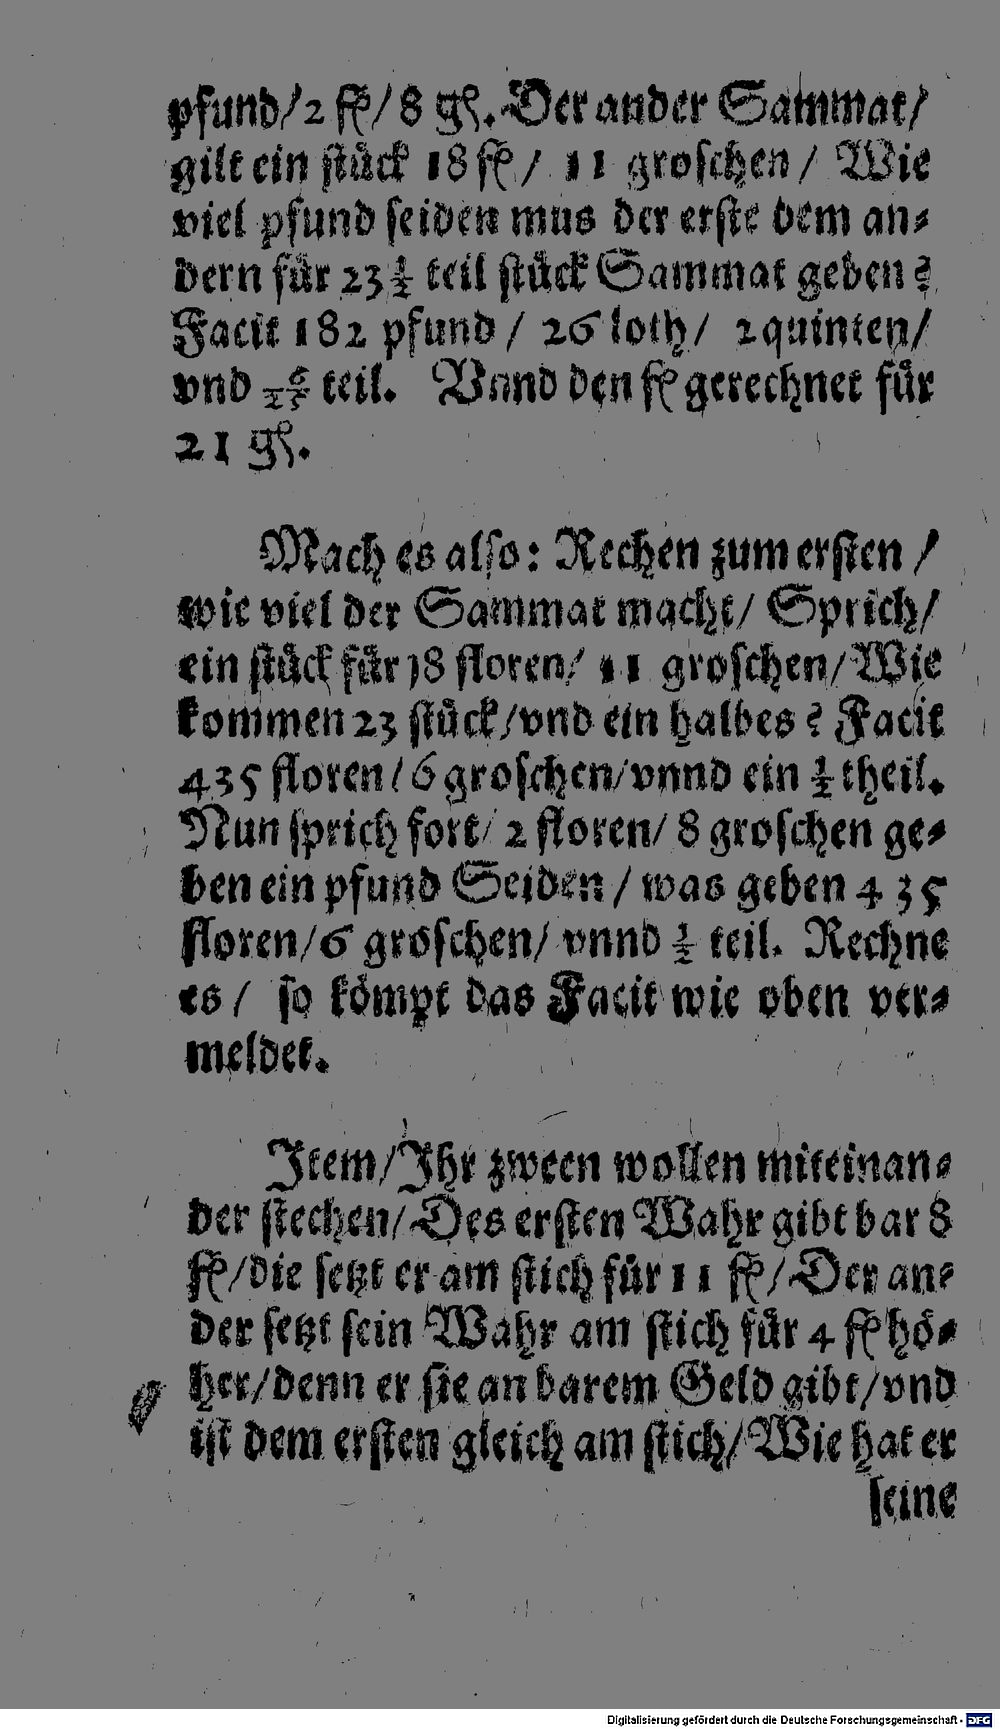 pfund/ 2 fl/ 8 gl. Der ander Sammat/
gilt ein ſtück 18 fl/ 11 groſchen/ Wie
viel pfund ſeiden mus der erſte dem an⸗
dern für 23 1/2 teil ſtück Sammat geben?
Facit 182 pfund/ 26 loth/ 2 quinten/
vnd 6/25 teil. Vnnd den fl gerechnet für
21 gl.
Mach es alſo: Rechen zum erſten/
wie viel der Sammat macht/ Sprich/
ein ſtück für 18 floren/ 11 groſchen/ Wie
kommen 23 ſtück/ vnd ein halbes? Facit
435 floren/ 6 groſchen/ vnnd ein 1/2 theil.
Nun ſprich fort/ 2 floren/ 8 groſchen ge⸗
ben ein pfund Seiden/ was geben 435
floren/ 6 groſchen/ vnnd 1/2 teil. Rechne
es/ ſo kömpt das Facit wie oben ver⸗
meldet.
Item/ Ihr zween wollen miteinan⸗
der ſtechen/ Des erſten Wahr gibt bar 8
fl/ die ſetzt er am ſtich für 11 fl/ Der an⸗
der ſetzt ſein Wahr am ſtich für 4 fl hö⸗
her/ denn er ſie an barem Geld gibt/ vnd
iſt dem erſten gleich am ſtich/ Wie hat er
ſeine
Digitalisierung gefördert durch die Deutsche Forschungsgemeinschaft - DFG